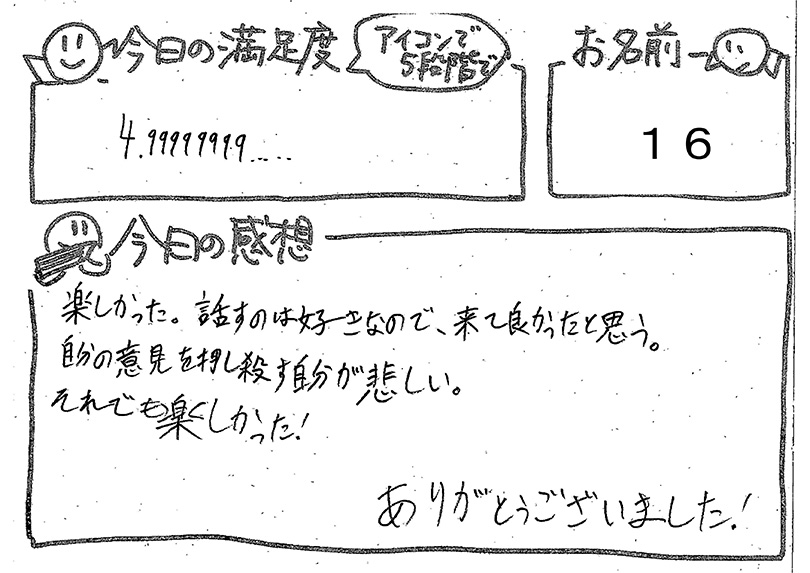 今日の満足度
アイコンで
5段階で
お名前
4.99999999.....
16
今日の感想
楽しかった。話すのは好きなので、来て良かったと思う。
自分の意見を押し殺す自分が悲しい。
それでも楽しかった!
ありがとうございました!